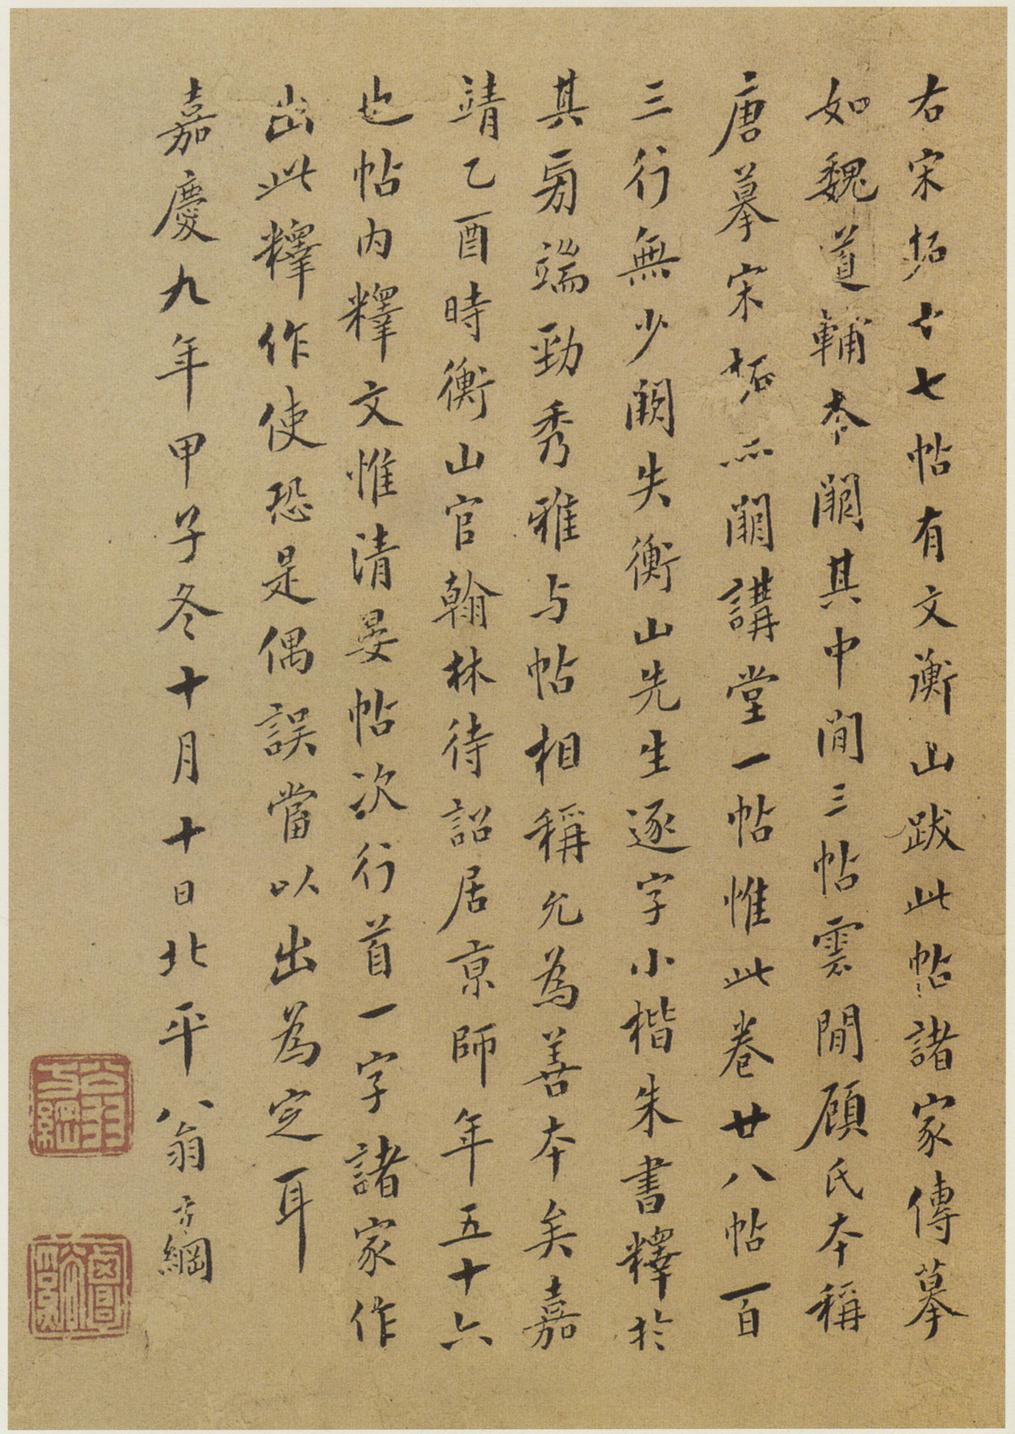 右宋拓十七帖有文衡山跋此帖諸家傳摹
如魏道輔本闕其中間三帖雲間顧氏本稱
唐摹宋拓亦闕講堂一帖惟此卷廿八帖百
三行無少闕失衡山先生逐字小楷朱書釋於
其旁端勁秀雅与帖相稱允為善本矣嘉
靖乙酉時衡山官翰林待詔居京師年五十六
也帖內釋文惟清晏帖次行首一字諸家作
出此釋作使恐是偶誤當以出為定耳
嘉慶九年甲子冬十月十日北平翁方綱
翁方綱
覃谿